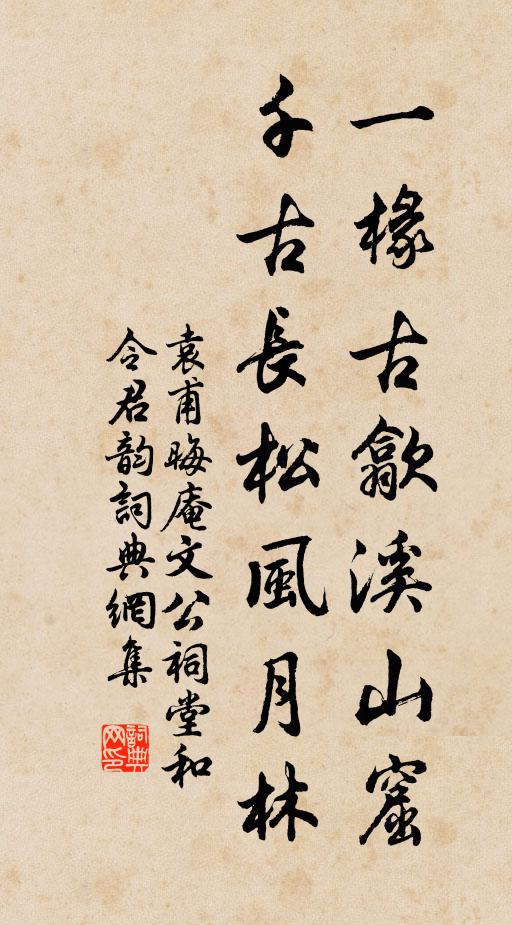 一椽古歙溪山窟
千古長松風月林
袁甫晦庵文公祠堂和
令君韵詞典網集
詞典网印